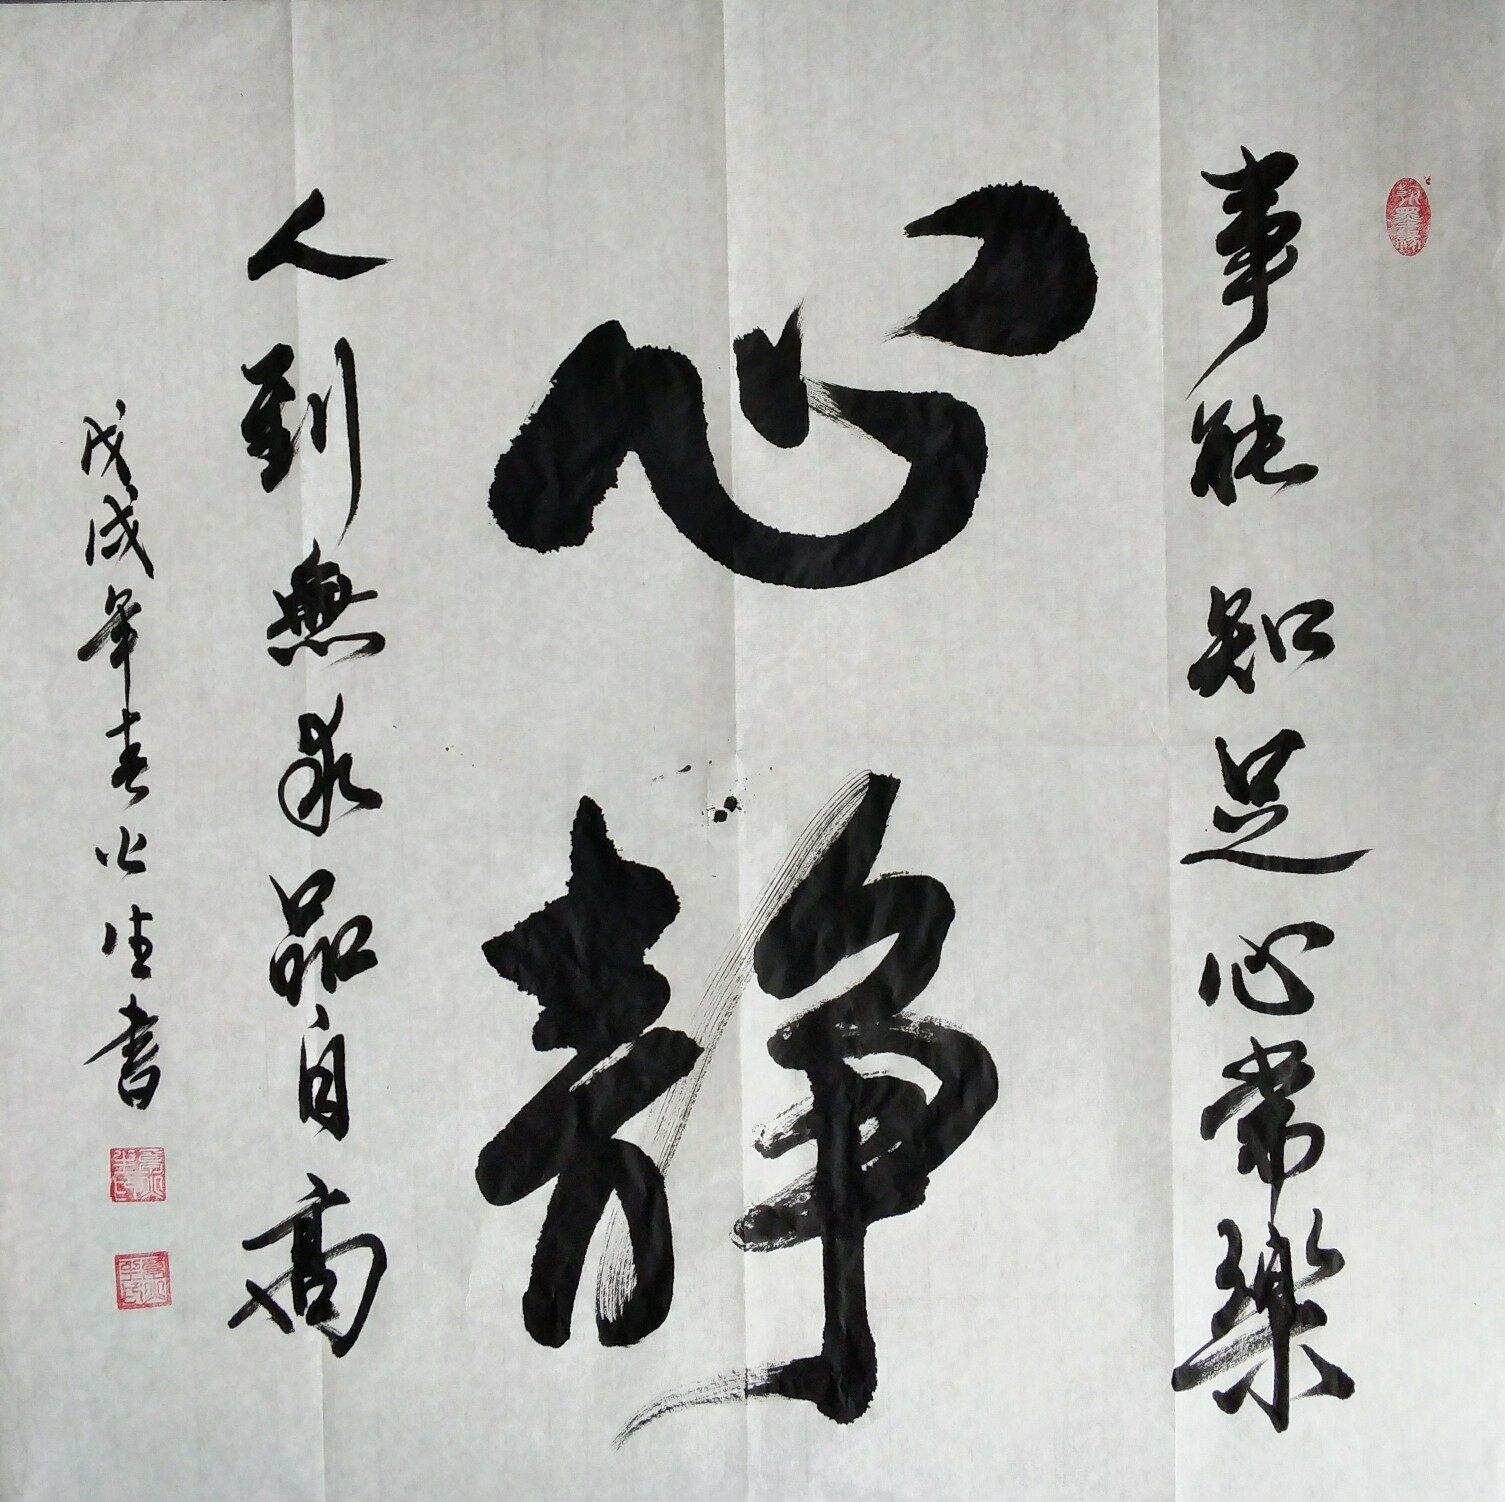 事能知足心常樂
心静
人到無求品自高
戊戌年春火生書